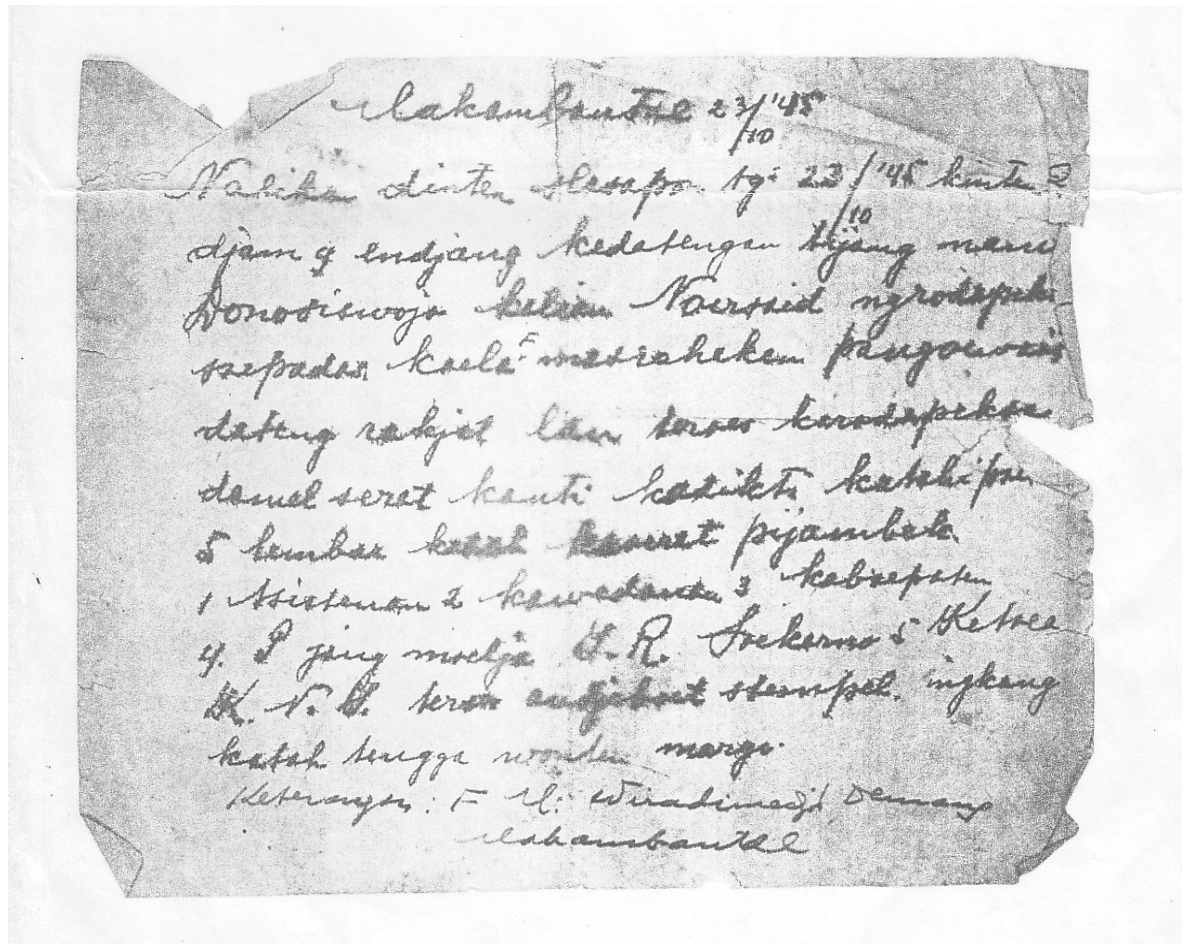 23/10 '45
Nalika dinten Slasa pon tg: 23/10 '45 kinten2
djam 9 endjang kedatengan tijang nami
Donosiswojo kalian Noersaid ngrodapeksa
soepados koela F masrahaken pangoewaos
dateng rakjat lan teroes karodapeksa
damel serat kanti kadikte katahipoen
5 lembar katah kaserat pijambak.
1 Asistenan 2 kawedanan 3 kaboepaten
4. P jang moelja I.R. Soekarno 5 Ketoea
K.N.I. teroes andjaboet stempel. ingkang
katah tengga wonten margi.
Keterangan: F